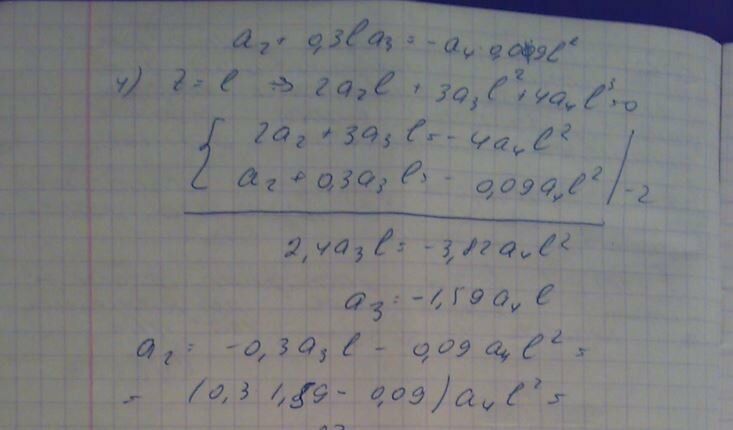 a₂ + 0,3l a₃ = -a₄ 0,09l²
4) z = l ⇒ 2a₂l + 3a₃l² + 4a₄l³ = 0
{ 2a₂ + 3a₃l = -4a₄l²
a₂ + 0,3a₃l = - 0,09a₄l² | -2
2,4a₃l = -3,82a₄l²
a₃ = -1,59a₄l
a₂ = -0,3a₃l - 0,09a₄l² =
= (0,3 1,59 - 0,09)a₄l² =